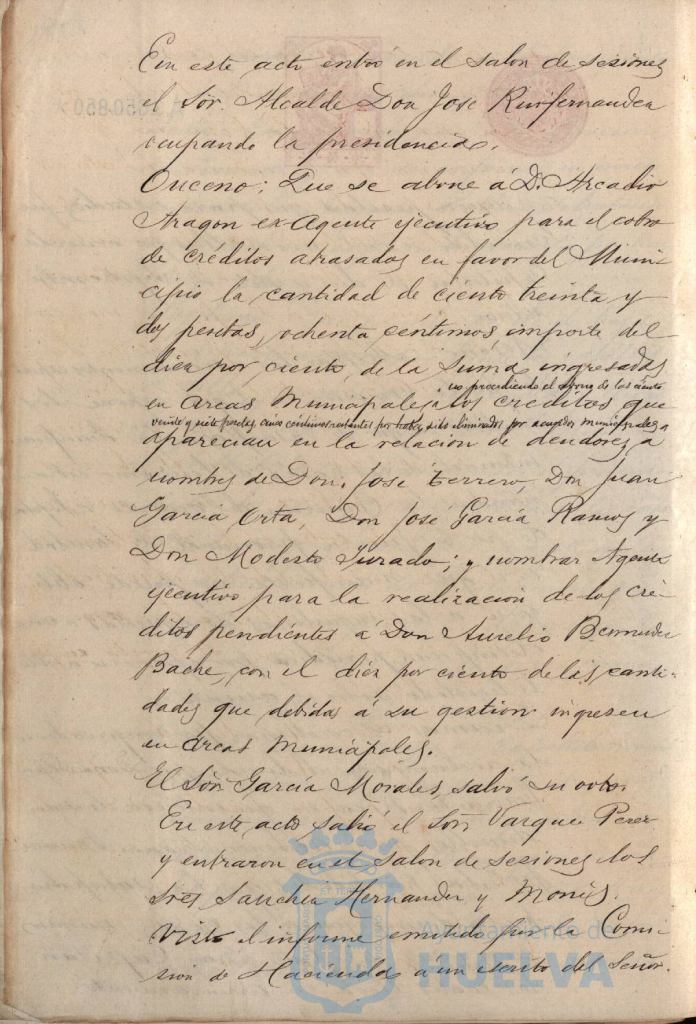 En este acto entró en el salon de sesiones
el Sor. Alcalde Don Jose Ruifernandez
ocupando la presidencia.
Onceno: Que se abone á D. Arcadio
Aragon ex-Agente ejecutivo para el cobro
de créditos atrasados en favor del Muni-
cipio la cantidad de ciento treinta y
dos pesetas, ochenta céntimos, importe del
diez por ciento, de la suma ingresada
no procediendo el abono de las ciento
en arcas Municipales, los créditos que
veinte y siete pesetas, cinco céntimos restantes por haber sido eliminados por acuerdos municipales
aparecian en la relacion de deudores, a
nombres de Don. José Ferrero, Don Juan
Garcia Orta, Don José García Ramos y
Don Modesto Jurado; y nombrar Agente
ejecutivo para la realización de los cré-
ditos pendientes á Don Aurelio Bermudez
Bache, con el diez por ciento de las canti-
dades que debidas á su gestion ingresen
en arcas Municipales.
El Sor. García Morales, salvó su voto.
En este acto salió el Sor. Vazquez Perez
y entraron en el salon de sesiones los
Sres Sanchez Hernandez y Monis.
Visto el informe emitido por la Comi-
sion de Hacienda a un escrito del Señor
Ayuntamiento de
HUELVA